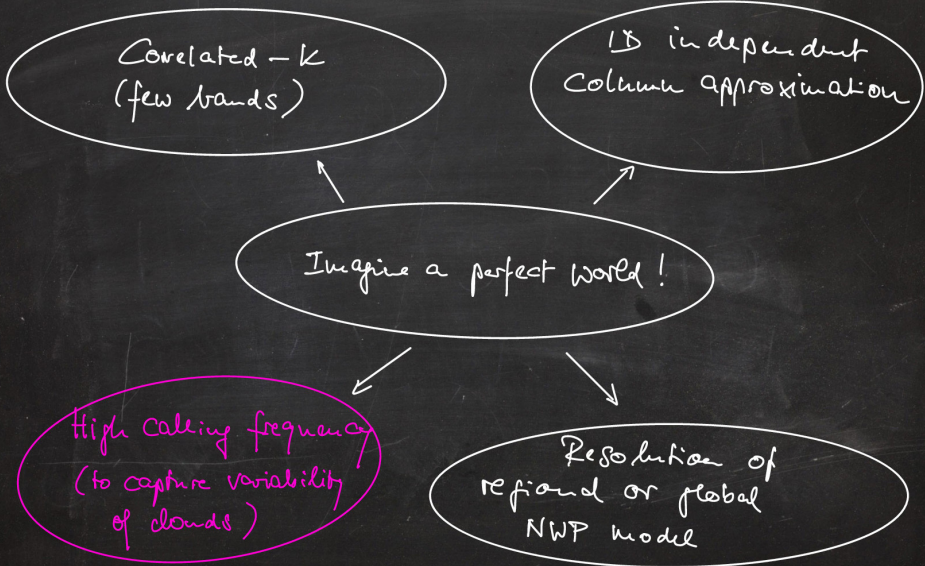 Correlated - K
(few bands)
1D independent
column approximation
Imagine a perfect world!
High calling frequency
(to capture variability
of clouds)
Resolution of
regional or global
NWP model